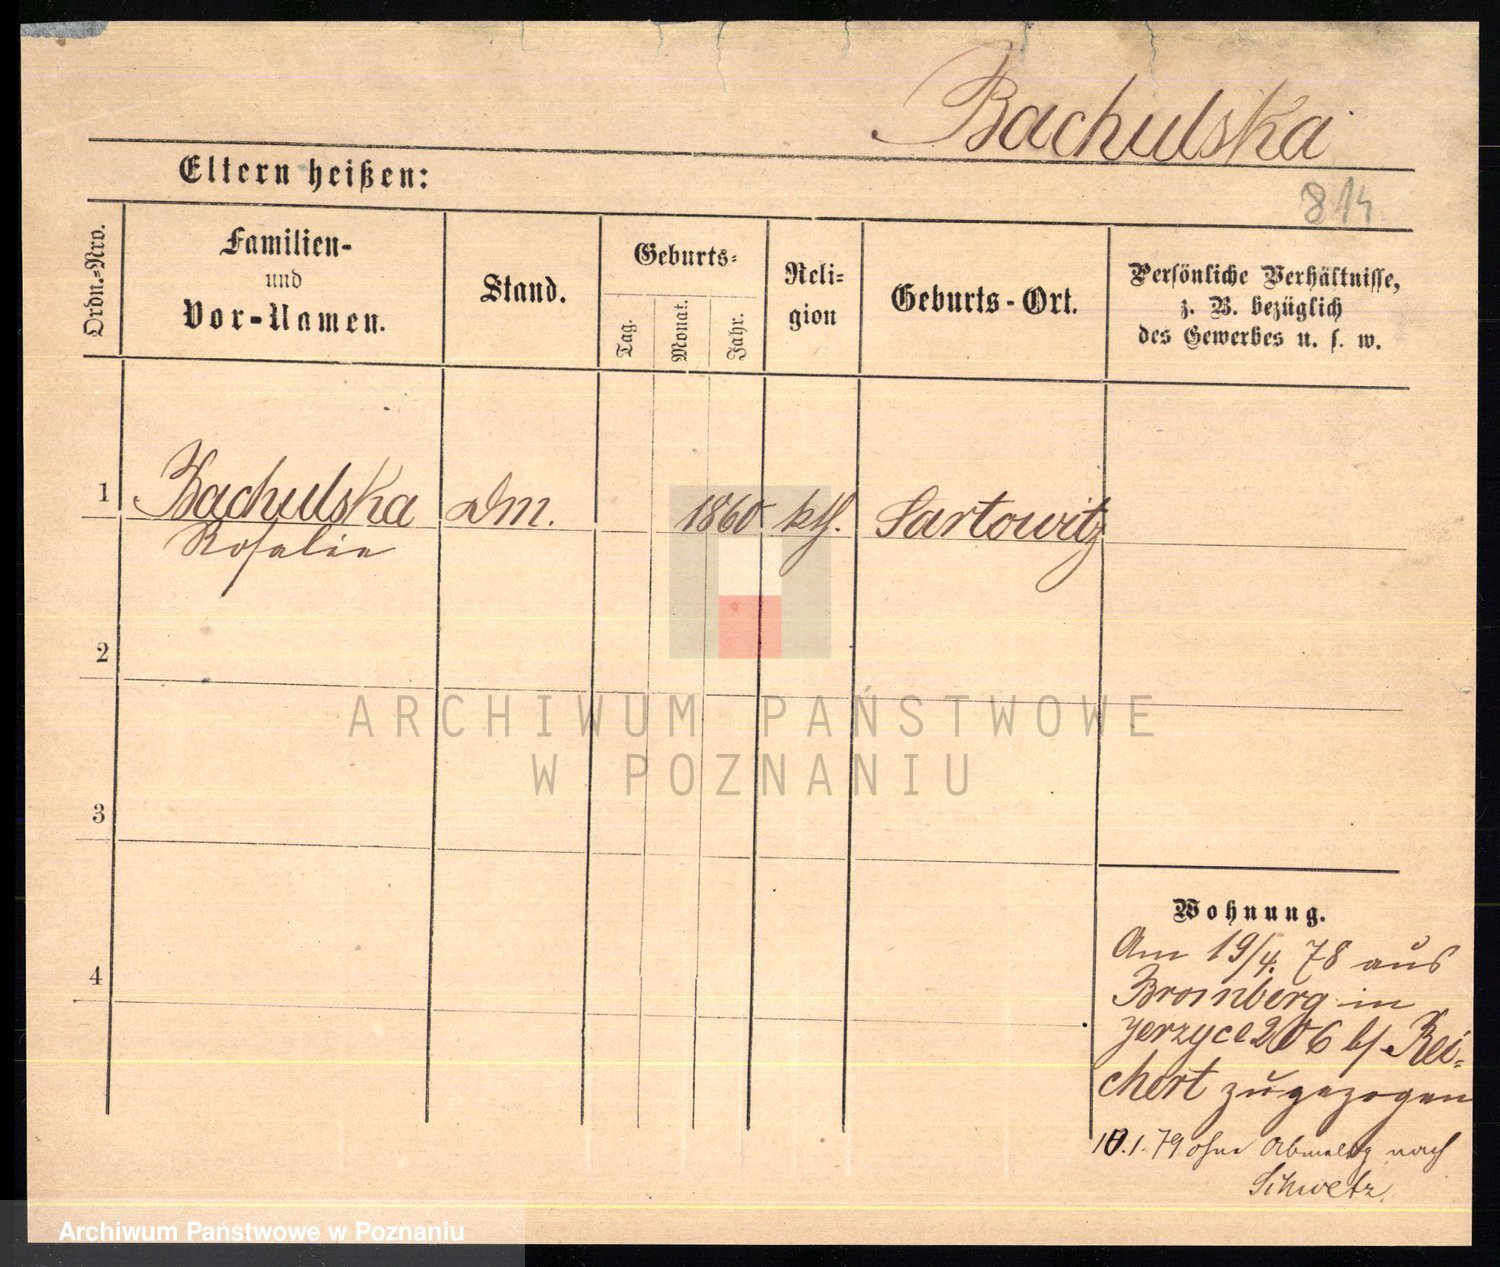 Bachulska
814
Eltern heißen:
Ordn.-Nro.
Familien-
und
Vor-Namen.
Stand.
Geburts-
Tag.
Monat.
Jahr.
Reli-
gion
Geburts-Ort.
Persönliche Verhältnisse,
z. B. bezüglich
des Gewerbes u. s. w.
1 Bachulska Dm. 1860 kth. Sartowitz
Rosalie
2
3
4
Wohnung.
Am 19/4. 78 aus
Bromberg in
Jerzyce 206 b/ Rei-
chert zugezogen
10.1.79 ohne Abmeldg nach
Schwetz.
ARCHIWUM PAŃSTWOWE
W POZNANIU
Archiwum Państwowe w Poznaniu